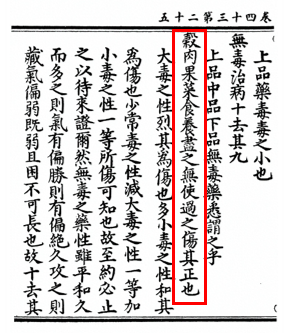 卷四十三第二十五
上品藥毒毒之小也
無毒治病十去其九
上品中品下品無毒藥悉謂之平
穀肉果菜食養盡之無使過之傷其正也
大毒之性烈其為傷也多小毒之性和其
為傷也少常毒之性減大毒之性一等加
小毒之性一等所傷可知也故至約必止
之以待來證爾然無毒之藥性雖平和久
而多之則氣有偏勝則有偏絕久攻之則
藏氣偏弱既弱且困不可長也故十去其